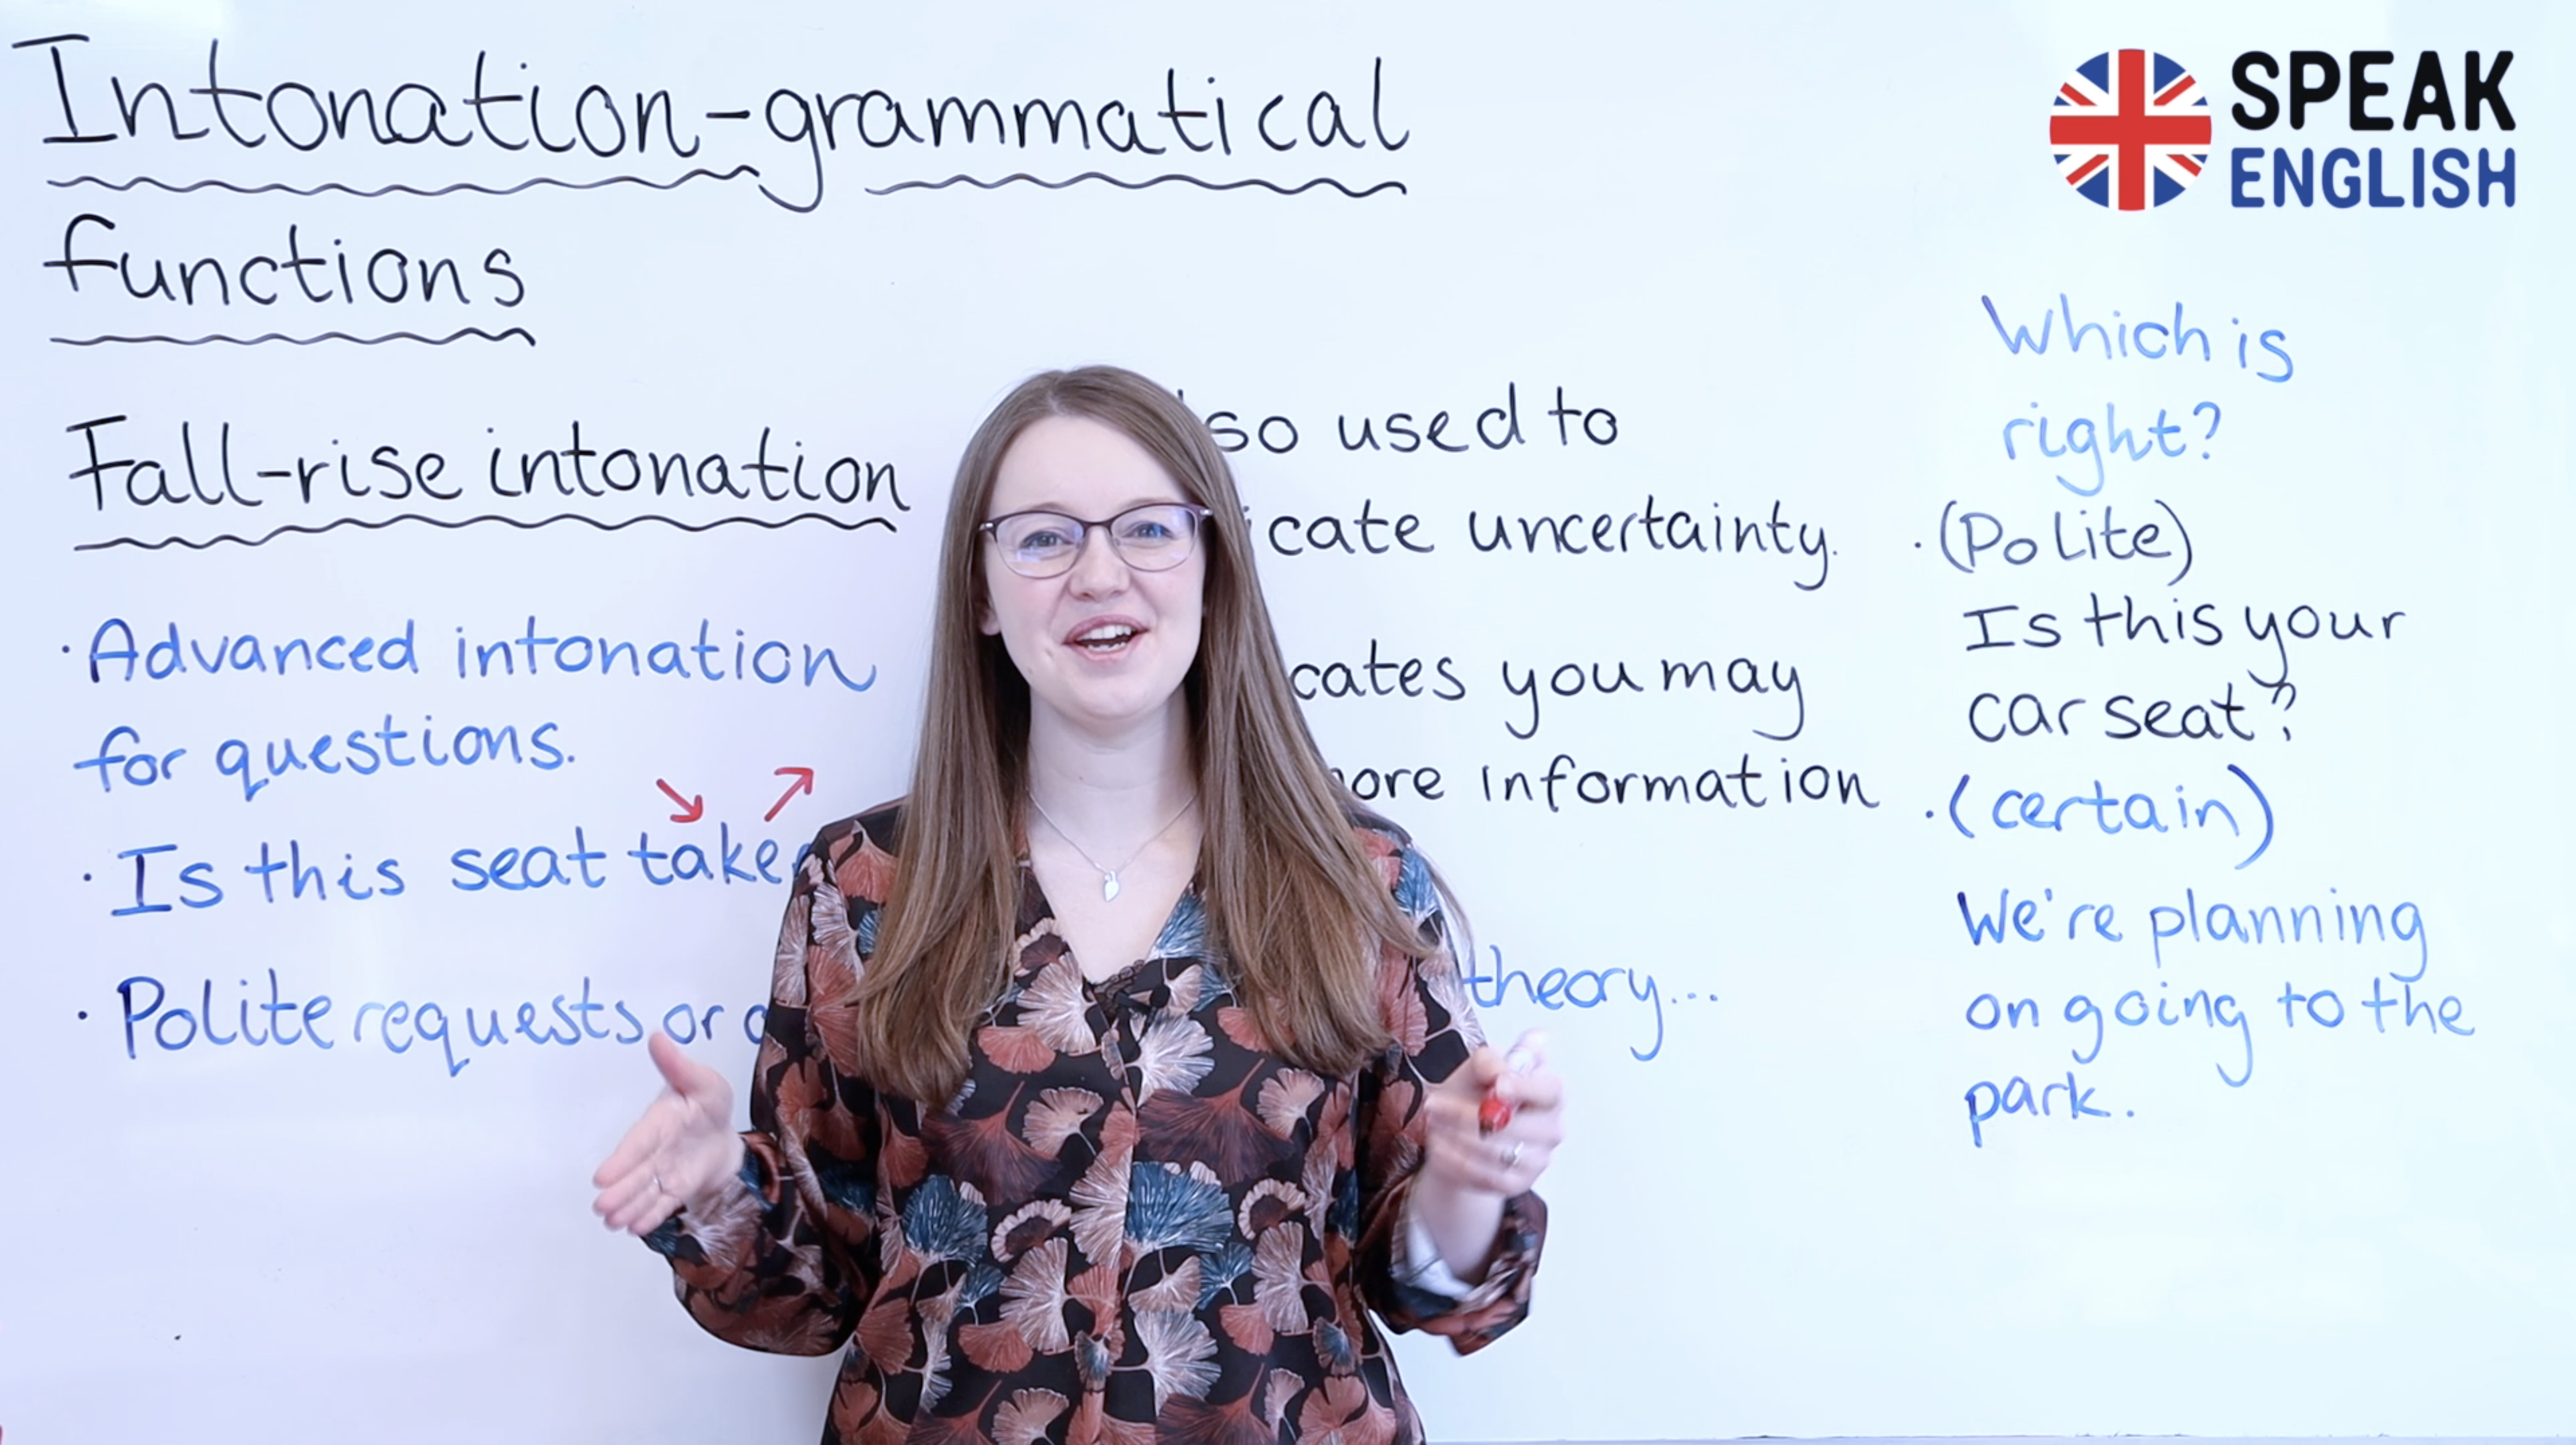 Intonation-grammatical
functions
SPEAK
ENGLISH
Fall-rise intonation
· Advanced intonation
for questions.
· Is this seat
· Polite requests or
used to
uncertainty.
you may
information
theory...
Which is
right?
· (Polite)
Is this your
car seat?
· (certain)
We're planning
on going to the
park.